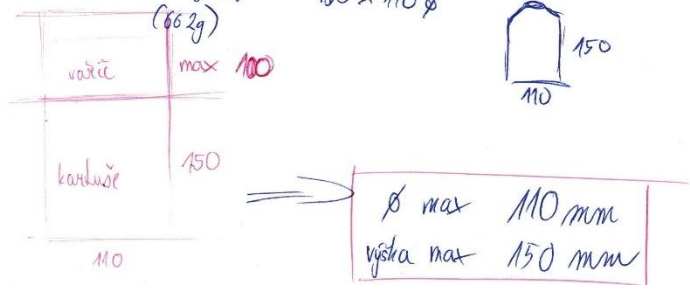 (662g)
150 x 110 ø
vařič max 100
kartuše 150
110
150
110
ø max 110 mm
výška max 150 mm